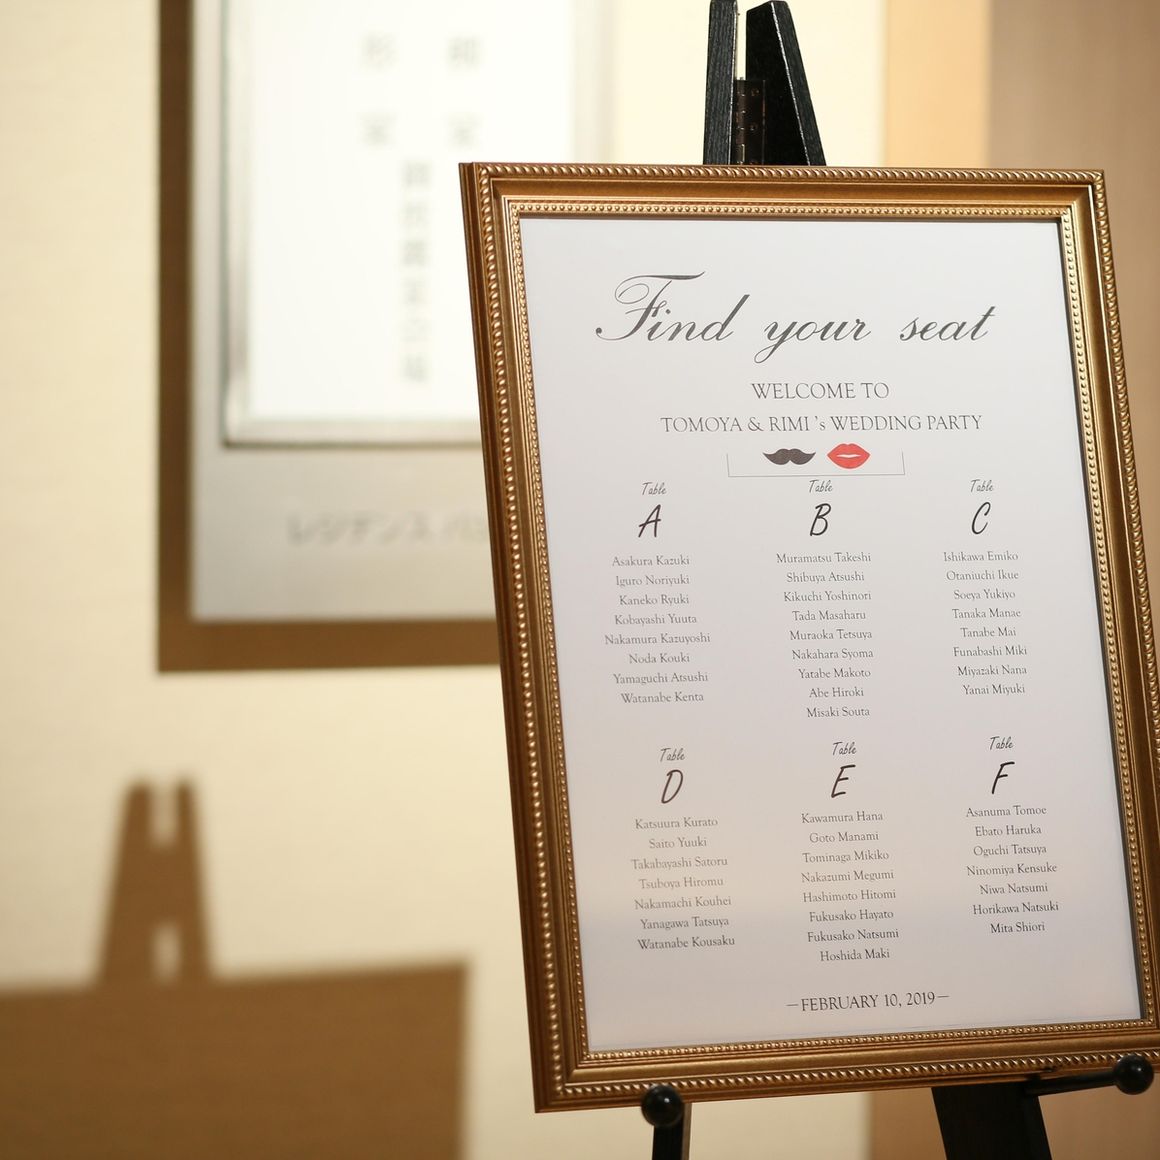 Find your seat
WELCOME TO
TOMOYA & RIMI 's WEDDING PARTY
Table
A
Asakura Kazuki
Iguro Noriyuki
Kaneko Ryuki
Kobayashi Yuuta
Nakamura Kazuyoshi
Noda Kouki
Yamaguchi Atsushi
Watanabe Kenta
Table
B
Muramatsu Takeshi
Shibuya Atsushi
Kikuchi Yoshinori
Tada Masaharu
Muraoka Tetsuya
Nakahara Syoma
Yatabe Makoto
Abe Hiroki
Misaki Souta
Table
C
Ishikawa Emiko
Otaniuchi Ikue
Soeya Yukiyo
Tanaka Manae
Tanabe Mai
Funabashi Miki
Miyazaki Nana
Yanai Miyuki
Table
D
Katsuura Kurato
Saito Yuuki
Takabayashi Satoru
Tsuboya Hiromu
Nakamachi Kouhei
Yanagawa Tatsuya
Watanabe Kousaku
Table
E
Kawamura Hana
Goto Manami
Tominaga Mikiko
Nakazumi Megumi
Hashimoto Hitomi
Fukusako Hayato
Fukusako Natsumi
Hoshida Maki
Table
F
Asanuma Tomoe
Ebato Haruka
Oguchi Tatsuya
Ninomiya Kensuke
Niwa Natsumi
Horikawa Natsuki
Mita Shiori
—FEBRUARY 10, 2019—
レジデンス